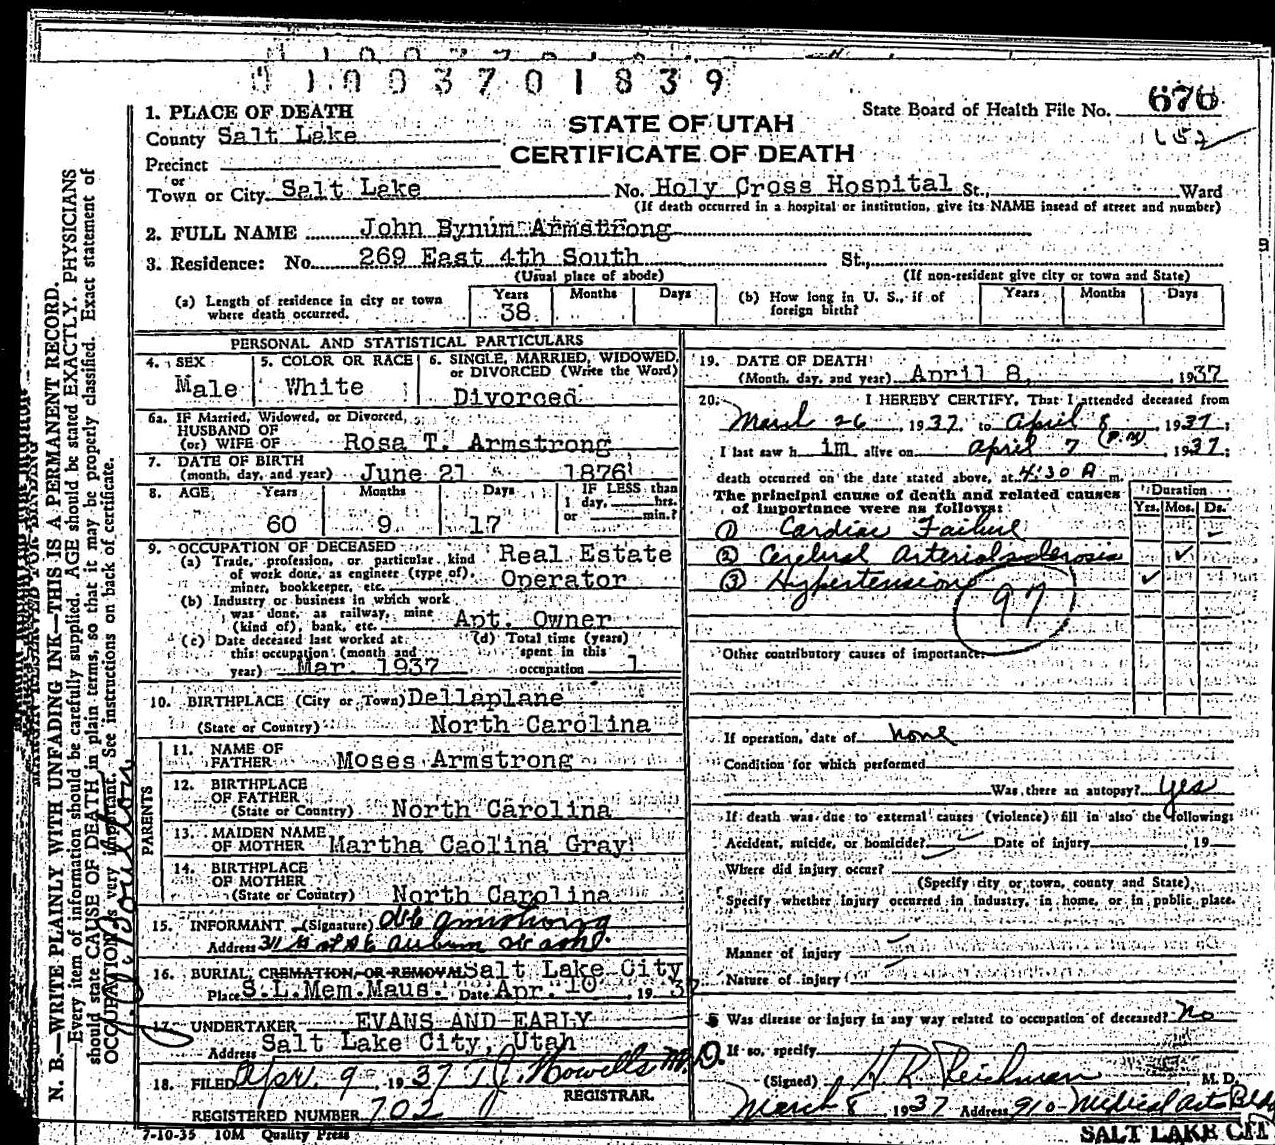 1003701839
State Board of Health File No. 676
STATE OF UTAH
CERTIFICATE OF DEATH
1. PLACE OF DEATH
County Salt Lake
Precinct
or
Town or City Salt Lake No. Holy Cross Hospital St., Ward
(If death occurred in a hospital or institution, give its NAME insead of street and number)
2. FULL NAME John Bynum Armstrong
3. Residence: No. 269 East 4th South St.,
(Usual place of abode) (If non-resident give city or town and State)
(a) Length of residence in city or town where death occurred. Years 38 Months Days
(b) How long in U. S., if of foreign birth? Years Months Days
PERSONAL AND STATISTICAL PARTICULARS
4. SEX Male
5. COLOR OR RACE White
6. SINGLE, MARRIED, WIDOWED, or DIVORCED (Write the Word) Divorced
6a. IF Married, Widowed, or Divorced,
HUSBAND OF
(or) WIFE OF Rosa T. Armstrong
7. DATE OF BIRTH
(month, day, and year) June 21 1876
8. AGE Years 60 Months 9 Days 17 IF LESS than 1 day, hrs. or min.?
9. OCCUPATION OF DECEASED
(a) Trade, profession, or particular kind of work done, as engineer (type of), miner, bookkeeper, etc. Real Estate Operator
(b) Industry or business in which work was done, as railway, mine (kind of), bank, etc. Apt. Owner
(c) Date deceased last worked at this occupation (month and year) Mar. 1937
(d) Total time (years) spent in this occupation 1
10. BIRTHPLACE (City or Town) Dellaplane
(State or Country) North Carolina
PARENTS
11. NAME OF FATHER Moses Armstrong
12. BIRTHPLACE OF FATHER
(State or Country) North Carolina
13. MAIDEN NAME OF MOTHER Martha Caolina Gray
14. BIRTHPLACE OF MOTHER
(State or Country) North Carolina
15. INFORMANT (Signature) Armstrong
Address Auburn
16. BURIAL, CREMATION, OR REMOVAL Salt Lake City
Place S.L.Mem.Maus. Date Apr. 10, 1937
17. UNDERTAKER EVANS AND EARLY
Address Salt Lake City, Utah
18. FILED Apr. 9, 1937 T.J. Howells M.D.
REGISTRAR.
REGISTERED NUMBER 702
7-10-35 10M Quality Press
19. DATE OF DEATH
(Month, day, and year) April 8, 1937
20. I HEREBY CERTIFY, That I attended deceased from
March 26, 1937, to April 8, 1937;
I last saw him alive on April 7 (P.M) 1937;
death occurred on the date stated above, at 4:30 A m.
The principal cause of death and related causes of importance were as follows:
Duration
Yrs. Mos. Ds.
1 Cardiac Failure
2 Cerebral Arterialsclerosis
3 Hypertension
97
Other contributory causes of importance:
If operation, date of none
Condition for which performed
Was there an autopsy? Yes
If death was due to external causes (violence) fill in also the following:
Accident, suicide, or homicide? Date of injury 19
Where did injury occur?
(Specify city or town, county and State)
Specify whether injury occurred in industry, in home, or in public place.
Manner of injury
Nature of injury
Was disease or injury in any way related to occupation of deceased? No
If so, specify
(Signed) H R Reichman M. D.
March 8, 1937 Address 910 Medical Arts Bldg
SALT LAKE CITY
N. B.—WRITE PLAINLY WITH UNFADING INK—THIS IS A PERMANENT RECORD.
Every item of information should be carefully supplied. AGE should be stated EXACTLY. PHYSICIANS
should state CAUSE OF DEATH in plain terms, so that it may be properly classified. Exact statement of
OCCUPATION is very important. See instructions on back of certificate.